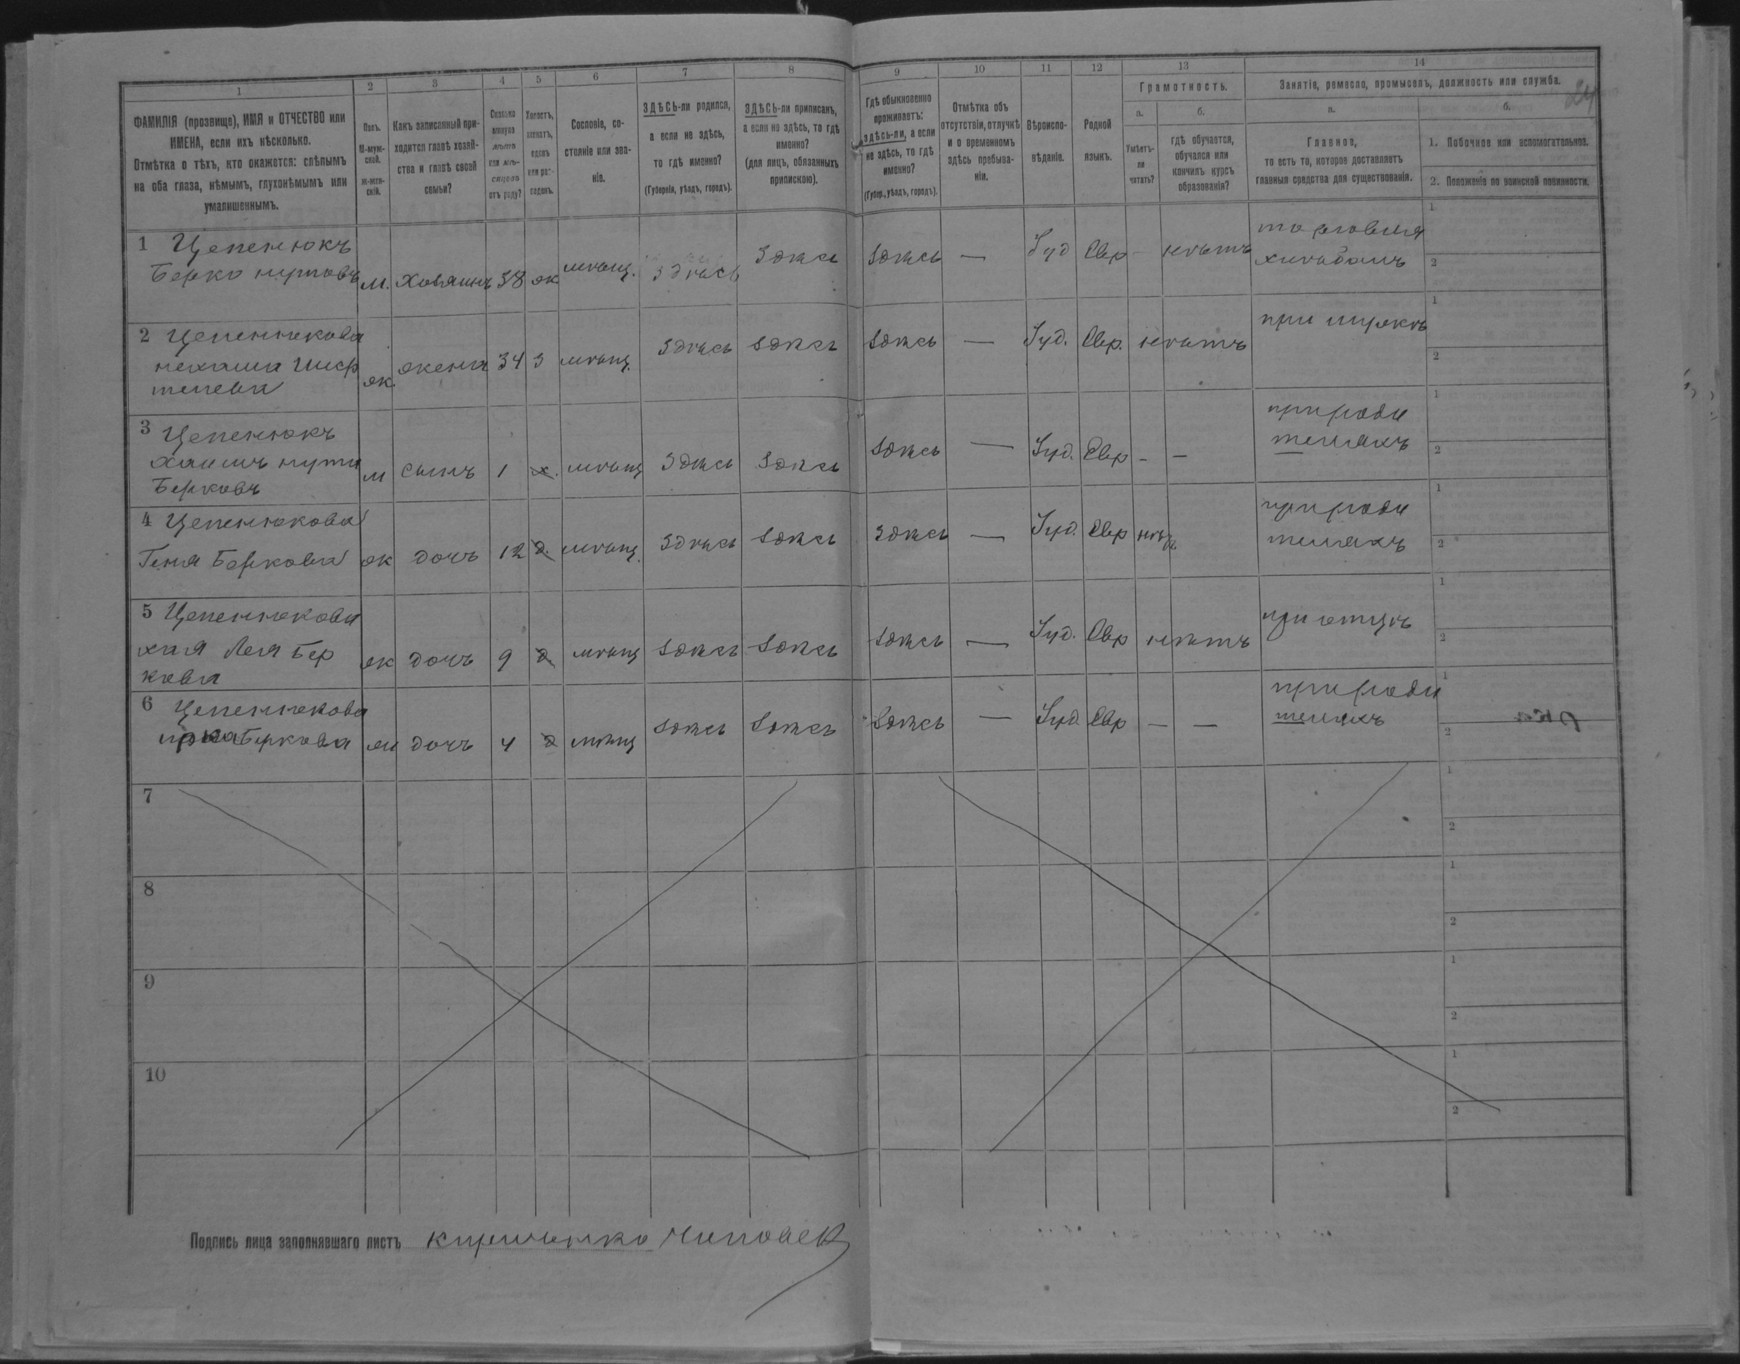 1 2 3 4 5 6 7 8 9 10 11 12 13 14
24
ФАМИЛІЯ (прозвище), ИМЯ и ОТЧЕСТВО или
ИМЕНА, если ихъ нѣсколько.
Отмѣтка о тѣхъ, кто окажется: слѣпымъ
на оба глаза, нѣмымъ, глухонѣмымъ или
умалишеннымъ.
Полъ.
М-муж-
ской.
Ж-жен-
скій.
Какъ записанный при-
ходится главѣ хозяй-
ства и главѣ своей
семьи?
Сколько
минуло
лѣтъ
или мѣ-
сяцевъ
отъ роду?
Холостъ,
женатъ,
вдовъ
или раз-
веденъ.
Сословіе, со-
стояніе или зва-
ніе.
ЗДѢСЬ-ли родился,
а если не здѣсь,
то гдѣ именно?
(Губернія, уѣздъ, городъ).
ЗДѢСЬ-ли приписанъ,
а если не здѣсь, то гдѣ
именно?
(для лицъ, обязанныхъ
припискою).
Гдѣ обыкновенно
проживаетъ:
здѣсь-ли, а если
не здѣсь, то гдѣ
именно?
(Губер., уѣздъ, городъ).
Отмѣтка объ
отсутствіи, отлучкѣ
и о временномъ
здѣсь пребыва-
ніи.
Вѣроиспо-
вѣданіе.
Родной
языкъ.
Грамотность.
а. б.
Умѣетъ-
ли
читать?
гдѣ обучается,
обучался или
кончилъ курсъ
образованія?
Занятія, ремесло, промыселъ, должность или служба.
а. б.
Главное,
то есть то, которое доставляетъ
главныя средства для существованія.
1. Побочное или вспомогательное.
2. Положеніе по воинской повинности.
1 Цепенюкъ
Берко Нутовъ м. Хозяинъ 38 ж мѣщ. Здѣсь Здѣсь Здѣсь — Іуд Евр - нѣтъ торговля
хлѣбомъ
1
2
2 Цепенюкова
Нехама
ж. жена 34 З мѣщ. Здѣсь Здѣсь Здѣсь — Іуд. Евр. нѣтъ при мужѣ
1
2
3 Цепенюкъ
Хаимъ Нута
Берковъ м сынъ 1 х. мѣщ Здѣсь Здѣсь Здѣсь — Іуд. Евр - - при роди
теляхъ
1
2
4 Цепенюкова
Геня Беркова ж дочь 12 д. мѣщ. Здѣсь Здѣсь Здѣсь — Іуд. Евр при роди
теляхъ
1
2
5 Цепенюкова
Хая Лея Бер
кова ж дочь 9 д мѣщ Здѣсь Здѣсь Здѣсь — Іуд. Евр нѣтъ при отцѣ
1
2
6 Цепенюкова
Беркова дочь 4 д мѣщ Здѣсь Здѣсь Здѣсь — Іуд Евр — — при роди
теляхъ
1
2
7
1
2
8
1
2
9
1
2
10
1
2
Подпись лица заполнявшаго листъ